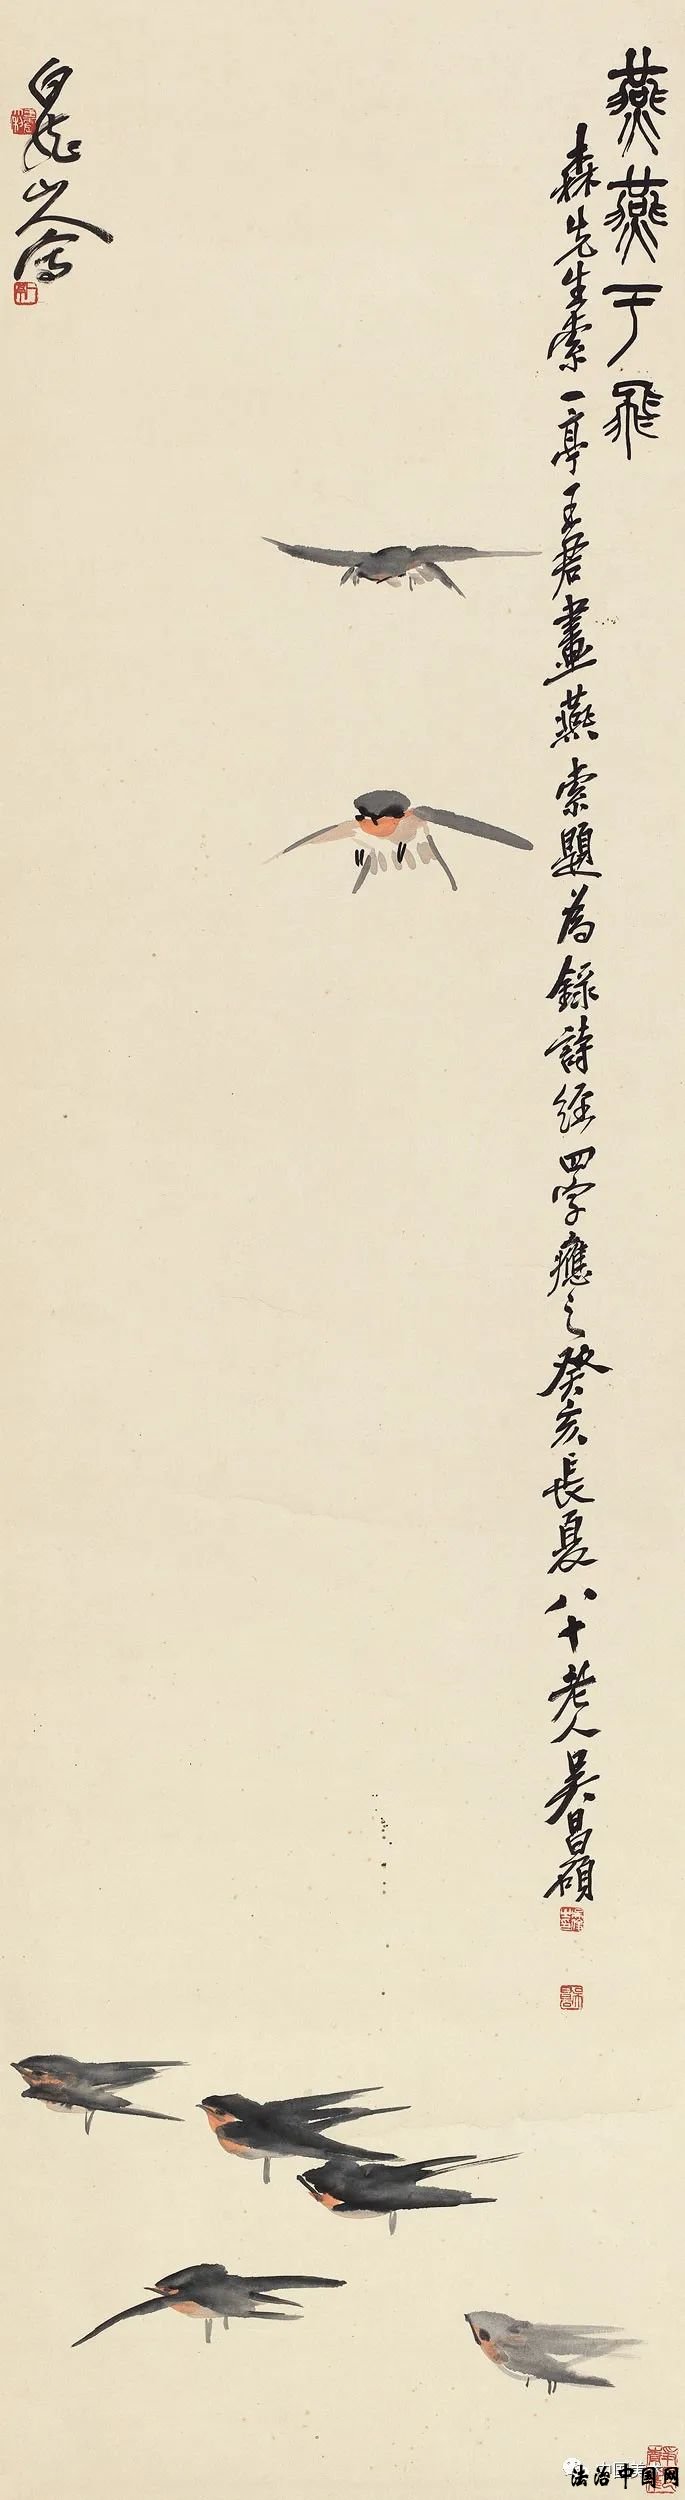 燕燕于飛
森先生索一亭王君畫燕索題為錄詩經四字應之癸亥長夏八十老人吳昌碩
白龍山人寫
中国美
法治中国网